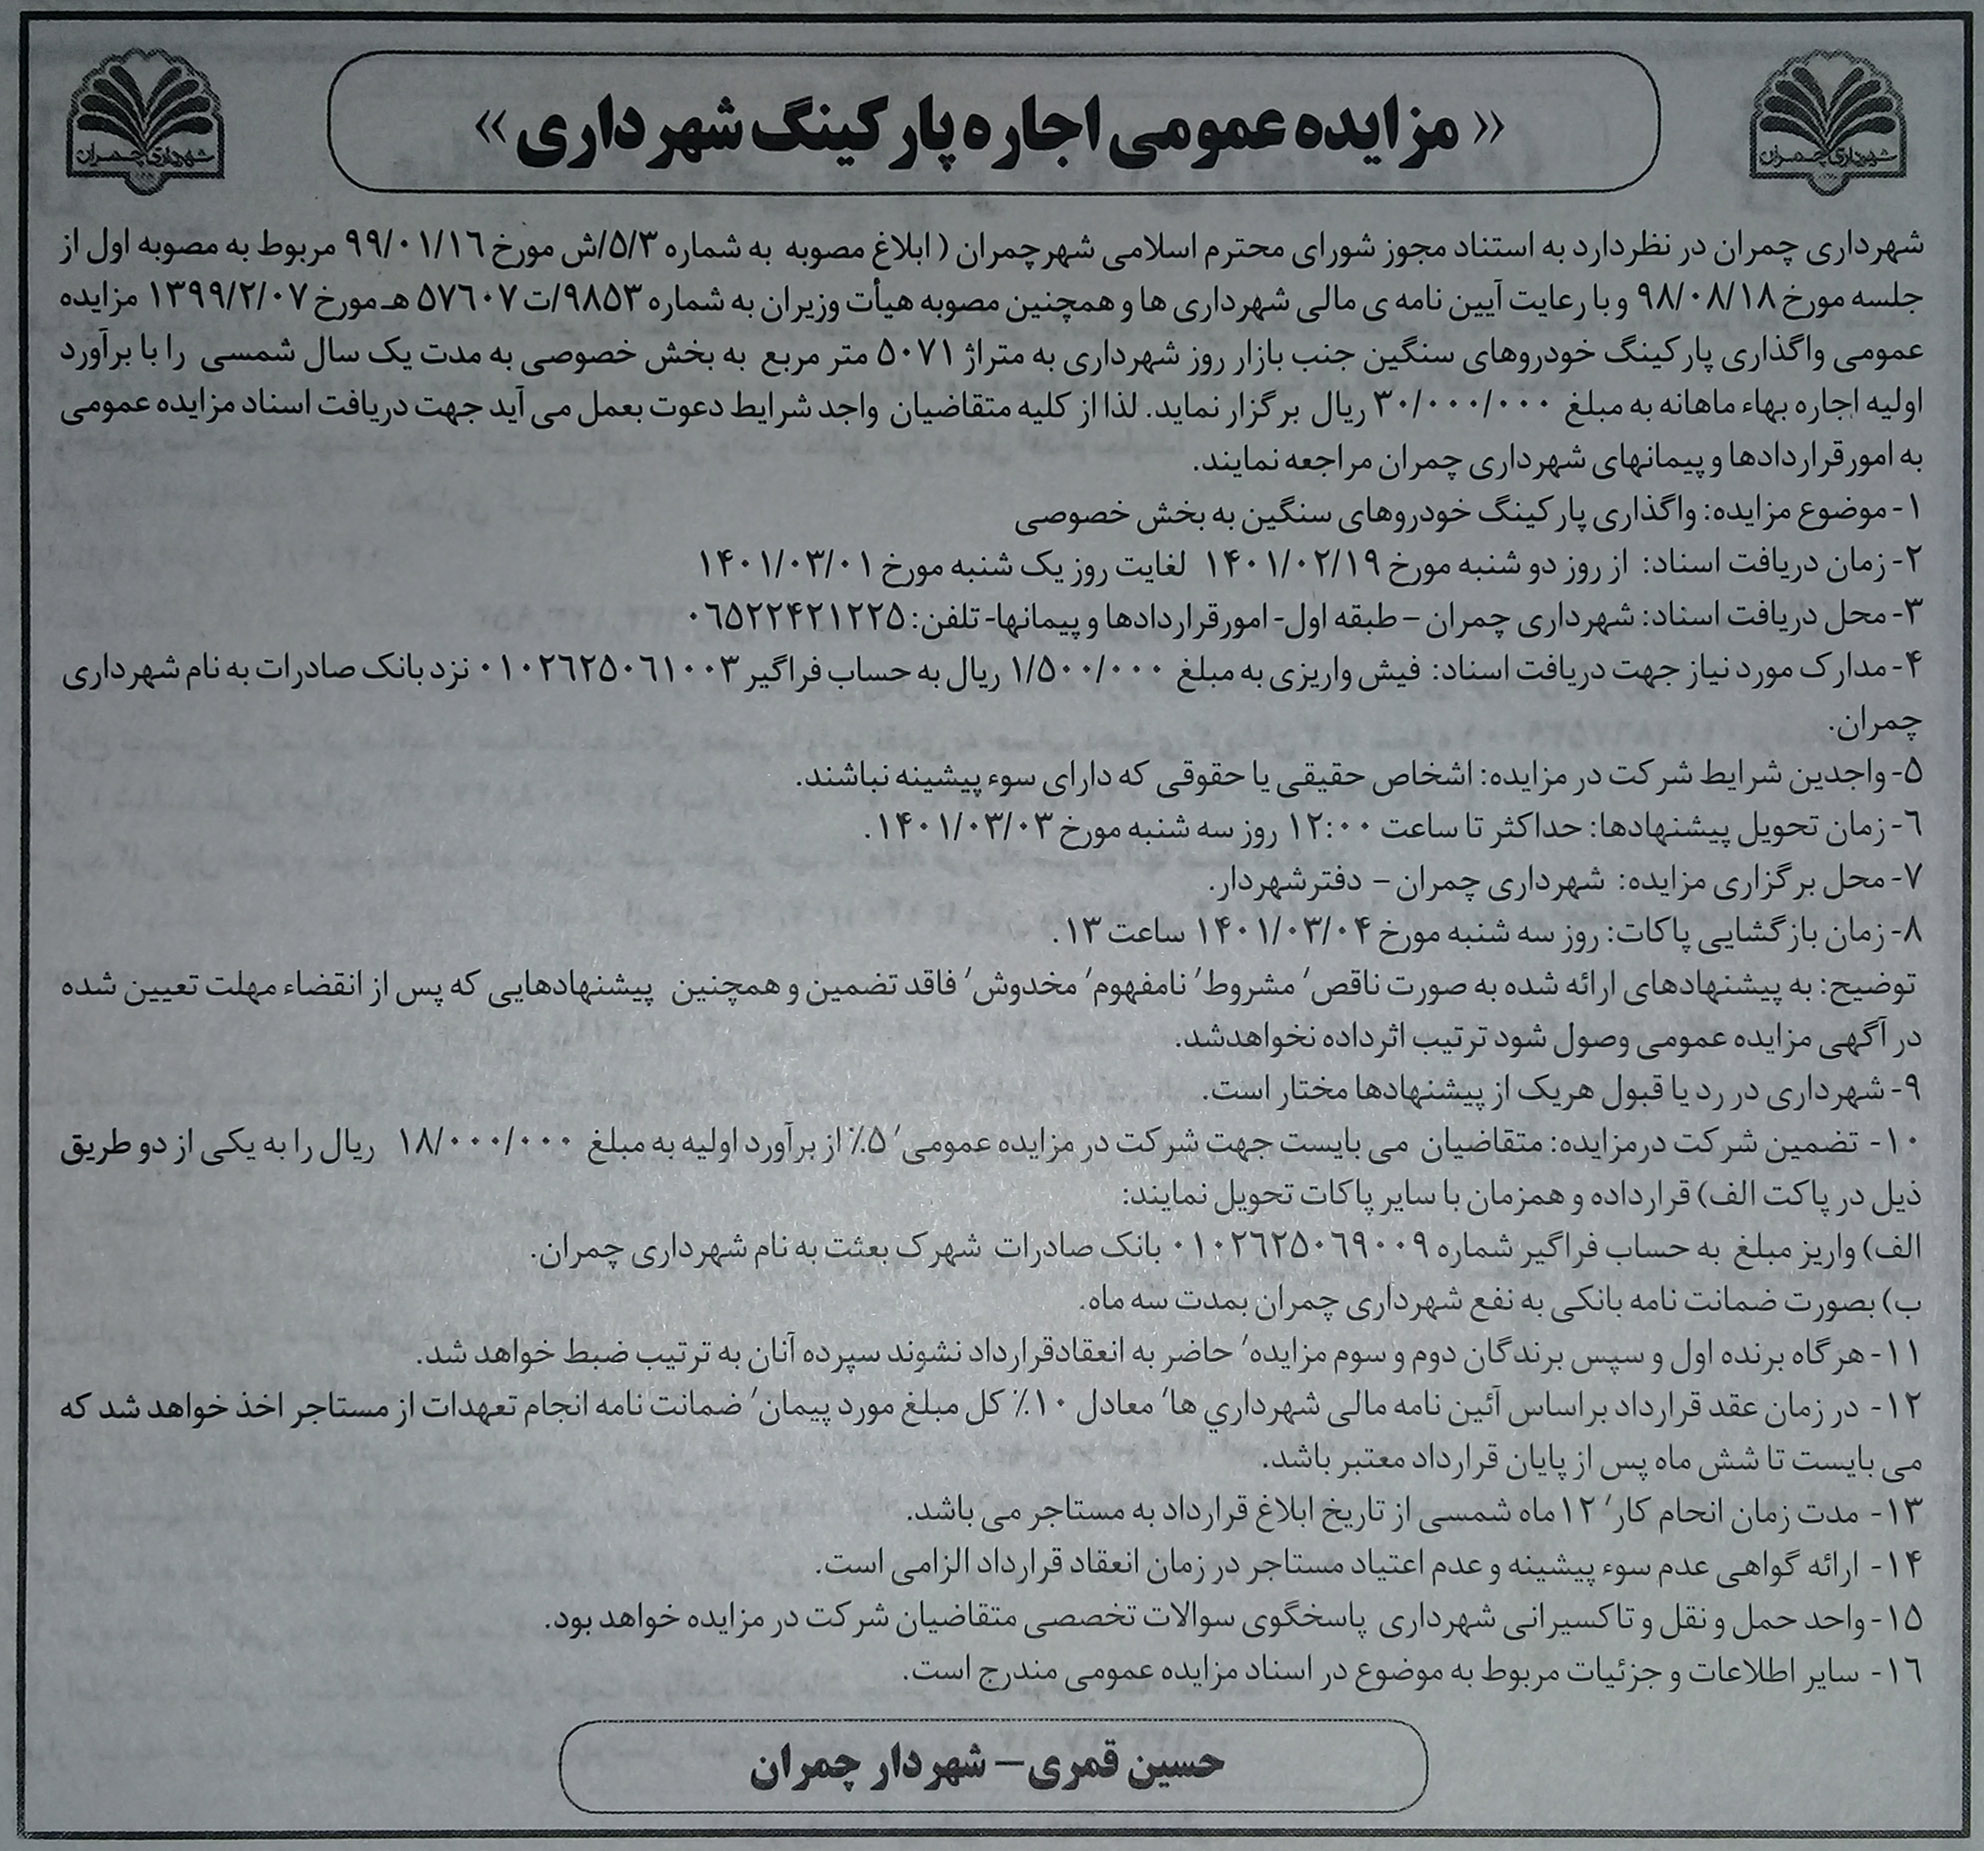 شهرداری چمران
شهرداری چمران
« مزایده عمومی اجاره پارکینگ شهرداری »
شهرداری چمران در نظردارد به استناد مجوز شورای محترم اسلامی شهرچمران ( ابلاغ مصوبه به شماره ۵/۳/ش مورخ ۹۹/۰۱/۱۶ مربوط به مصوبه اول از
جلسه مورخ ۹۸/۰۸/۱۸ و با رعایت آیین نامه ی مالی شهرداری ها و همچنین مصوبه هیأت وزیران به شماره ۹۸۵۳/ت ۵۷۶۰۷ هـ مورخ ۱۳۹۹/۲/۰۷ مزایده
عمومی واگذاری پارکینگ خودروهای سنگین جنب بازار روز شهرداری به متراژ ۵۰۷۱ متر مربع به بخش خصوصی به مدت یک سال شمسی را با برآورد
اولیه اجاره بهاء ماهانه به مبلغ ۳۰/۰۰۰/۰۰۰ ریال برگزار نماید. لذا از کلیه متقاضیان واجد شرایط دعوت بعمل می آید جهت دریافت اسناد مزایده عمومی
به امورقراردادها و پیمانهای شهرداری چمران مراجعه نمایند.
۱- موضوع مزایده: واگذاری پارکینگ خودروهای سنگین به بخش خصوصی
۲- زمان دریافت اسناد: از روز دو شنبه مورخ ۱۴۰۱/۰۲/۱۹ لغایت روز یک شنبه مورخ ۱۴۰۱/۰۳/۰۱
۳- محل دریافت اسناد: شهرداری چمران – طبقه اول- امورقراردادها و پیمانها- تلفن: ۰۶۵۲۲۴۲۱۲۲۵
۴- مدارک مورد نیاز جهت دریافت اسناد: فیش واریزی به مبلغ ۱/۵۰۰/۰۰۰ ریال به حساب فراگیر ۰۱۰۲۶۲۵۰۶۱۰۰۳ نزد بانک صادرات به نام شهرداری
چمران.
۵- واجدین شرایط شرکت در مزایده: اشخاص حقیقی یا حقوقی که دارای سوء پیشینه نباشند.
۶- زمان تحویل پیشنهادها: حداکثر تا ساعت ۱۲:۰۰ روز سه شنبه مورخ ۱۴۰۱/۰۳/۰۳.
۷- محل برگزاری مزایده: شهرداری چمران – دفترشهردار.
۸- زمان بازگشایی پاکات: روز سه شنبه مورخ ۱۴۰۱/۰۳/۰۴ ساعت ۱۳.
توضیح: به پیشنهادهای ارائه شده به صورت ناقص٬ مشروط٬ نامفهوم٬ مخدوش٬ فاقد تضمین و همچنین پیشنهادهایی که پس از انقضاء مهلت تعیین شده
در آگهی مزایده عمومی وصول شود ترتیب اثرداده نخواهدشد.
۹- شهرداری در رد یا قبول هریک از پیشنهادها مختار است.
۱۰- تضمین شرکت درمزایده: متقاضیان می بایست جهت شرکت در مزایده عمومی٬ ۵٪ از برآورد اولیه به مبلغ ۱۸/۰۰۰/۰۰۰ ریال را به یکی از دو طریق
ذیل در پاکت الف) قرارداده و همزمان با سایر پاکات تحویل نمایند:
الف) واریز مبلغ به حساب فراگیر شماره ۰۱۰۲۶۲۵۰۶۹۰۰۹ بانک صادرات شهرک بعثت به نام شهرداری چمران.
ب) بصورت ضمانت نامه بانکی به نفع شهرداری چمران بمدت سه ماه.
۱۱- هرگاه برنده اول و سپس برندگان دوم و سوم مزایده٬ حاضر به انعقادقرارداد نشوند سپرده آنان به ترتیب ضبط خواهد شد.
۱۲- در زمان عقد قرارداد براساس آئین نامه مالی شهرداري ها٬ معادل ۱۰٪ کل مبلغ مورد پیمان٬ ضمانت نامه انجام تعهدات از مستاجر اخذ خواهد شد که
می بایست تا شش ماه پس از پایان قرارداد معتبر باشد.
۱۳- مدت زمان انجام کار٬ ۱۲ ماه شمسی از تاریخ ابلاغ قرارداد به مستاجر می باشد.
۱۴- ارائه گواهی عدم سوء پیشینه و عدم اعتیاد مستاجر در زمان انعقاد قرارداد الزامی است.
۱۵- واحد حمل و نقل و تاکسیرانی شهرداری پاسخگوی سوالات تخصصی متقاضیان شرکت در مزایده خواهد بود.
۱۶- سایر اطلاعات و جزئیات مربوط به موضوع در اسناد مزایده عمومی مندرج است.
حسین قمری – شهردار چمران